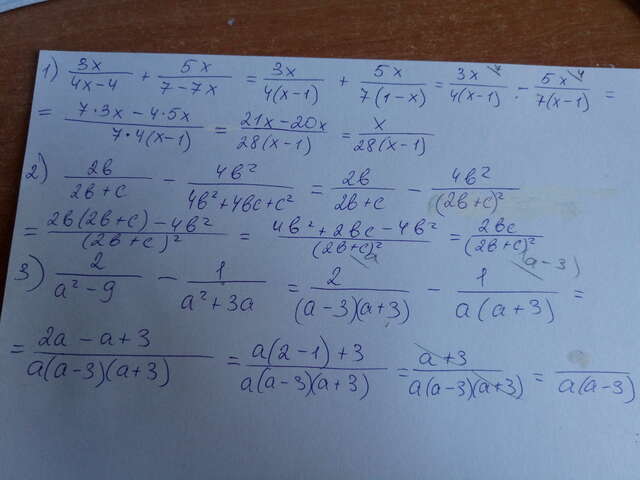 1) 3x/(4x-4) + 5x/(7-7x) = 3x/(4(x-1)) + 5x/(7(1-x)) = 3x/(4(x-1)) - 5x/(7(x-1)) =
= (7·3x-4·5x)/(7·4(x-1)) = (21x-20x)/(28(x-1)) = x/(28(x-1))
2) 2b/(2b+c) - 4b²/(4b²+4bc+c²) = 2b/(2b+c) - 4b²/(2b+c)²
= (2b(2b+c)-4b²)/(2b+c)² = (4b²+2bc-4b²)/(2b+c)² = 2bc/(2b+c)²
3) 2/(a²-9) - 1/(a²+3a) = 2\a/((a-3)(a+3)) - 1\(a-3)/(a(a+3)) =
= (2a-a+3)/(a(a-3)(a+3)) = (a(2-1)+3)/(a(a-3)(a+3)) = (a+3)/(a(a-3)(a+3)) = /(a(a-3))